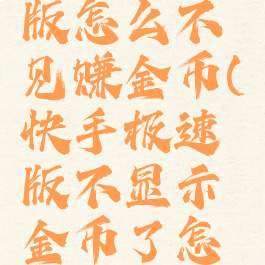 版怎么不
见赚金币(
快手极速
版不显示
金币了怎